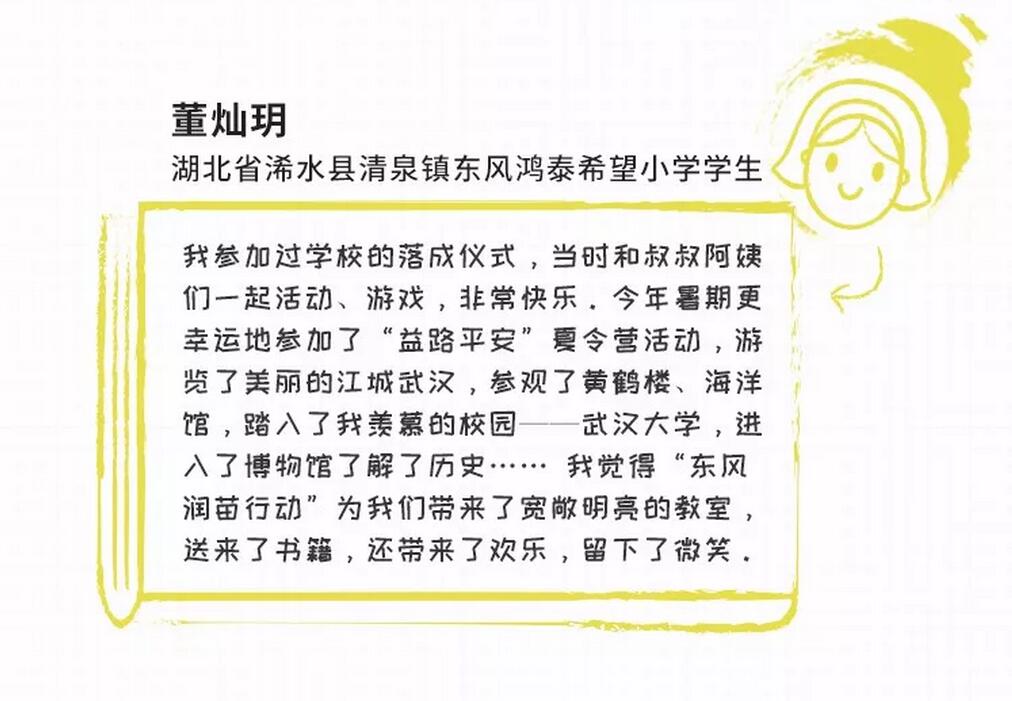 董灿玥
湖北省浠水县清泉镇东风鸿泰希望小学学生
我参加过学校的落成仪式，当时和叔叔阿姨
们一起活动、游戏，非常快乐．今年暑期更
幸运地参加了“益路平安”夏令营活动，游
览了美丽的江城武汉，参观了黄鹤楼、海洋
馆，踏入了我羡慕的校园——武汉大学，进
入了博物馆了解了历史…… 我觉得“东风
润苗行动”为我们带来了宽敞明亮的教室，
送来了书籍，还带来了欢乐，留下了微笑．